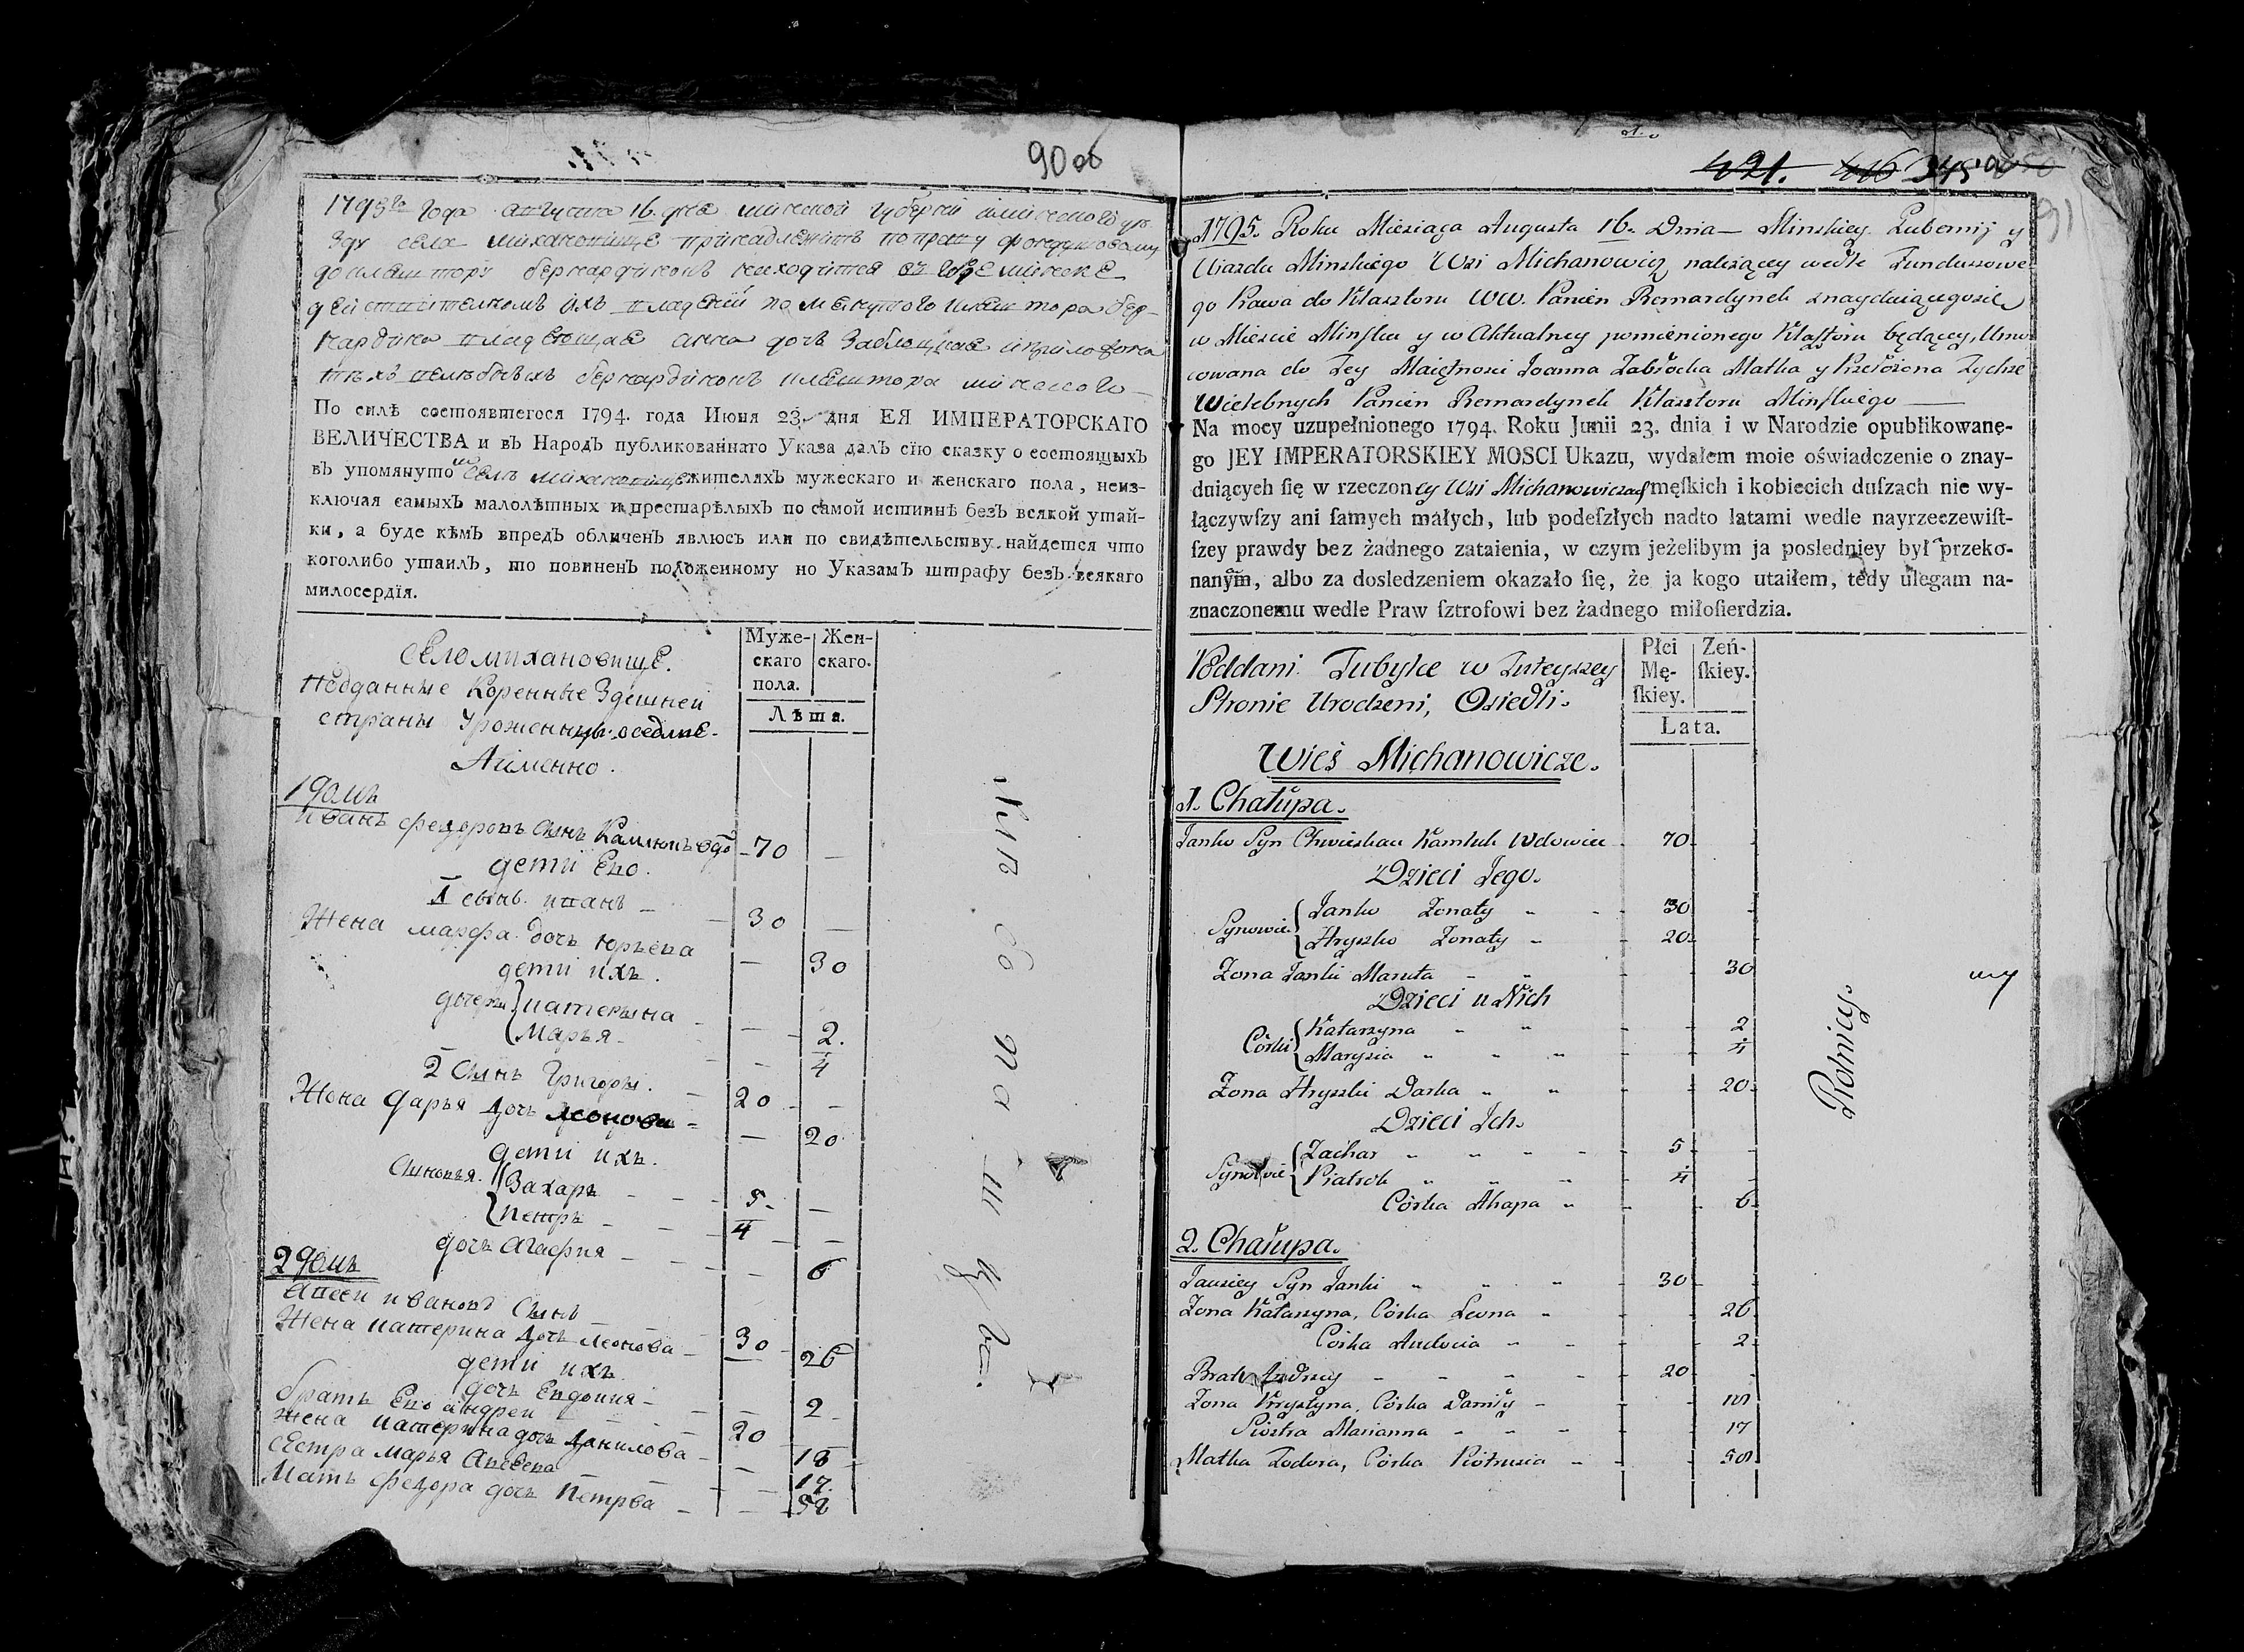 90 об
1795го Года августа 16. дня Минской Губернии Минского уе-
зду села Михановище принадлежить по праву фондушовому
до кляштору бернардинокъ находится въ городе Минске
действителномъ ихъ владении помянутого кляштора бер-
нардинка владеющае Анна дочь Заблоцкае
бернардинокъ кляштора минского
По силѣ состоявшегося 1794. года Июня 23. дня ЕЯ ИМПЕРАТОРСКАГО
ВЕЛИЧЕСТВА и въ Народъ публикованнаго Указа далъ сїю сказку о состоящыхъ
въ упомянуто селѣ Михановище жителяхъ мужескаго и женскаго пола, неиз-
ключая самыхъ малолѣтныхъ и престарѣлыхъ по самой истиннѣ безъ всякой утай-
ки, а буде кѣмъ впредъ обличенъ явлюсъ или по свидѣтельству найдется что
коголибо утаилъ, то повиненъ положенному по Указамъ штрафу безъ всякаго
милосердїя.
Село Михановище.
Подданные Коренные Здешней
страны Уроженцы оседлые
Аименно.
Муже-
скаго
пола.
Жен-
скаго.
Лѣта.
1 домъ
Иванъ Федоровъ сынъ Камлюкъ вдо - 70 —
дети Ево.
1 сынъ Иванъ — 30 —
Жена Марфа дочь Юрьева — 30
дети ихъ.
дочери Катерына — 2.
Марья — 4
2 Сынъ Григоры. 20 —
Жена Дарья дочь Леонова — 20
дети ихъ.
Сыновья. Захаръ 5 —
Петръ 4 —
дочь Агафия — 6
2 домъ
Алесей Ивановъ Сынъ 30
Жена Катерина дочь Леонова — 26
дети ихъ
дочь Евдокия — 2
братъ Ево Андрей 20
Жена Катерина дочь Данилова — 18
Сестра Марья — 17.
Мать Федора дочь Петрова — 58
1.
421. 416 345
91
1795. Roku Miesiąca Augusta 16. Dnia — Minskiey Gubernij y
Ujazdu Minskiego Wsi Michanowicz należącey wedle Fundusowe-
go Prawa do Klasztoru WW. Panien Bernardynek znayduiącegosię
w Mieście Minsku y w Aktualney pomienionego Klasztoru będącey, Umo-
cowana do Tey Maiętnosci Joanna Zabłocka Matka y Przełożona Tychże
Wielebnych Panien Bernardynek Klasztoru Minskiego —
Na mocy uzupełnionego 1794. Roku Junii 23. dnia i w Narodzie opublikowane-
go JEY IMPERATORSKIEY MOSCI Ukazu, wydałem moie oświadczenie o znay-
duiących ſię w rzeczoney Wsi Michanowiczach męſkich i kobiecich duſzach nie wy-
łączywſzy ani ſamych małych, lub podeſzłych nadto latami wedle nayrzeczewiſt-
ſzey prawdy bez żadnego zataienia, w czym jeżelibym ja posledniey był przeko-
nanym, albo za dosledzeniem okazało ſię, że ja kogo utaiłem, tedy ulegam na-
znaczonemu wedle Praw ſztrofowi bez żadnego miłoſierdzia.
Poddani Tubylce w Tuteyszey
Stronie Urodzeni, Osiedli.
Płci
Mę-
ſkiey.
Zeń-
ſkiey.
Lata.
Wieś Michanowicze.
1. Chałupa.
Janko Syn Chwieskau Kamluk Wdowiec 70 -
Dzieci Jego.
Synowie Janko Zonaty 30 -
Hryszko Zonaty 20 -
Zona Janki Maruta - 30
Dzieci u Nich
Córki Katarzyna - 2
Marysia - 4
Zona Hryszki Darka - 20
Dzieci Ich.
Synowie Zachar 5 -
Piatrok 4 -
Córka Ahapa - 6
2. Chałupa.
Jausiey Syn Janki 30 -
Zona Katarzyna, Córka Leona - 26
Córka Audocia - 2
Brat Andrzey 20 -
Zona Krystyna, Córka Daniły - 18
Siostra Marianna - 17
Matka Todora, Córka Piotrusia - 58
Rolnicy.